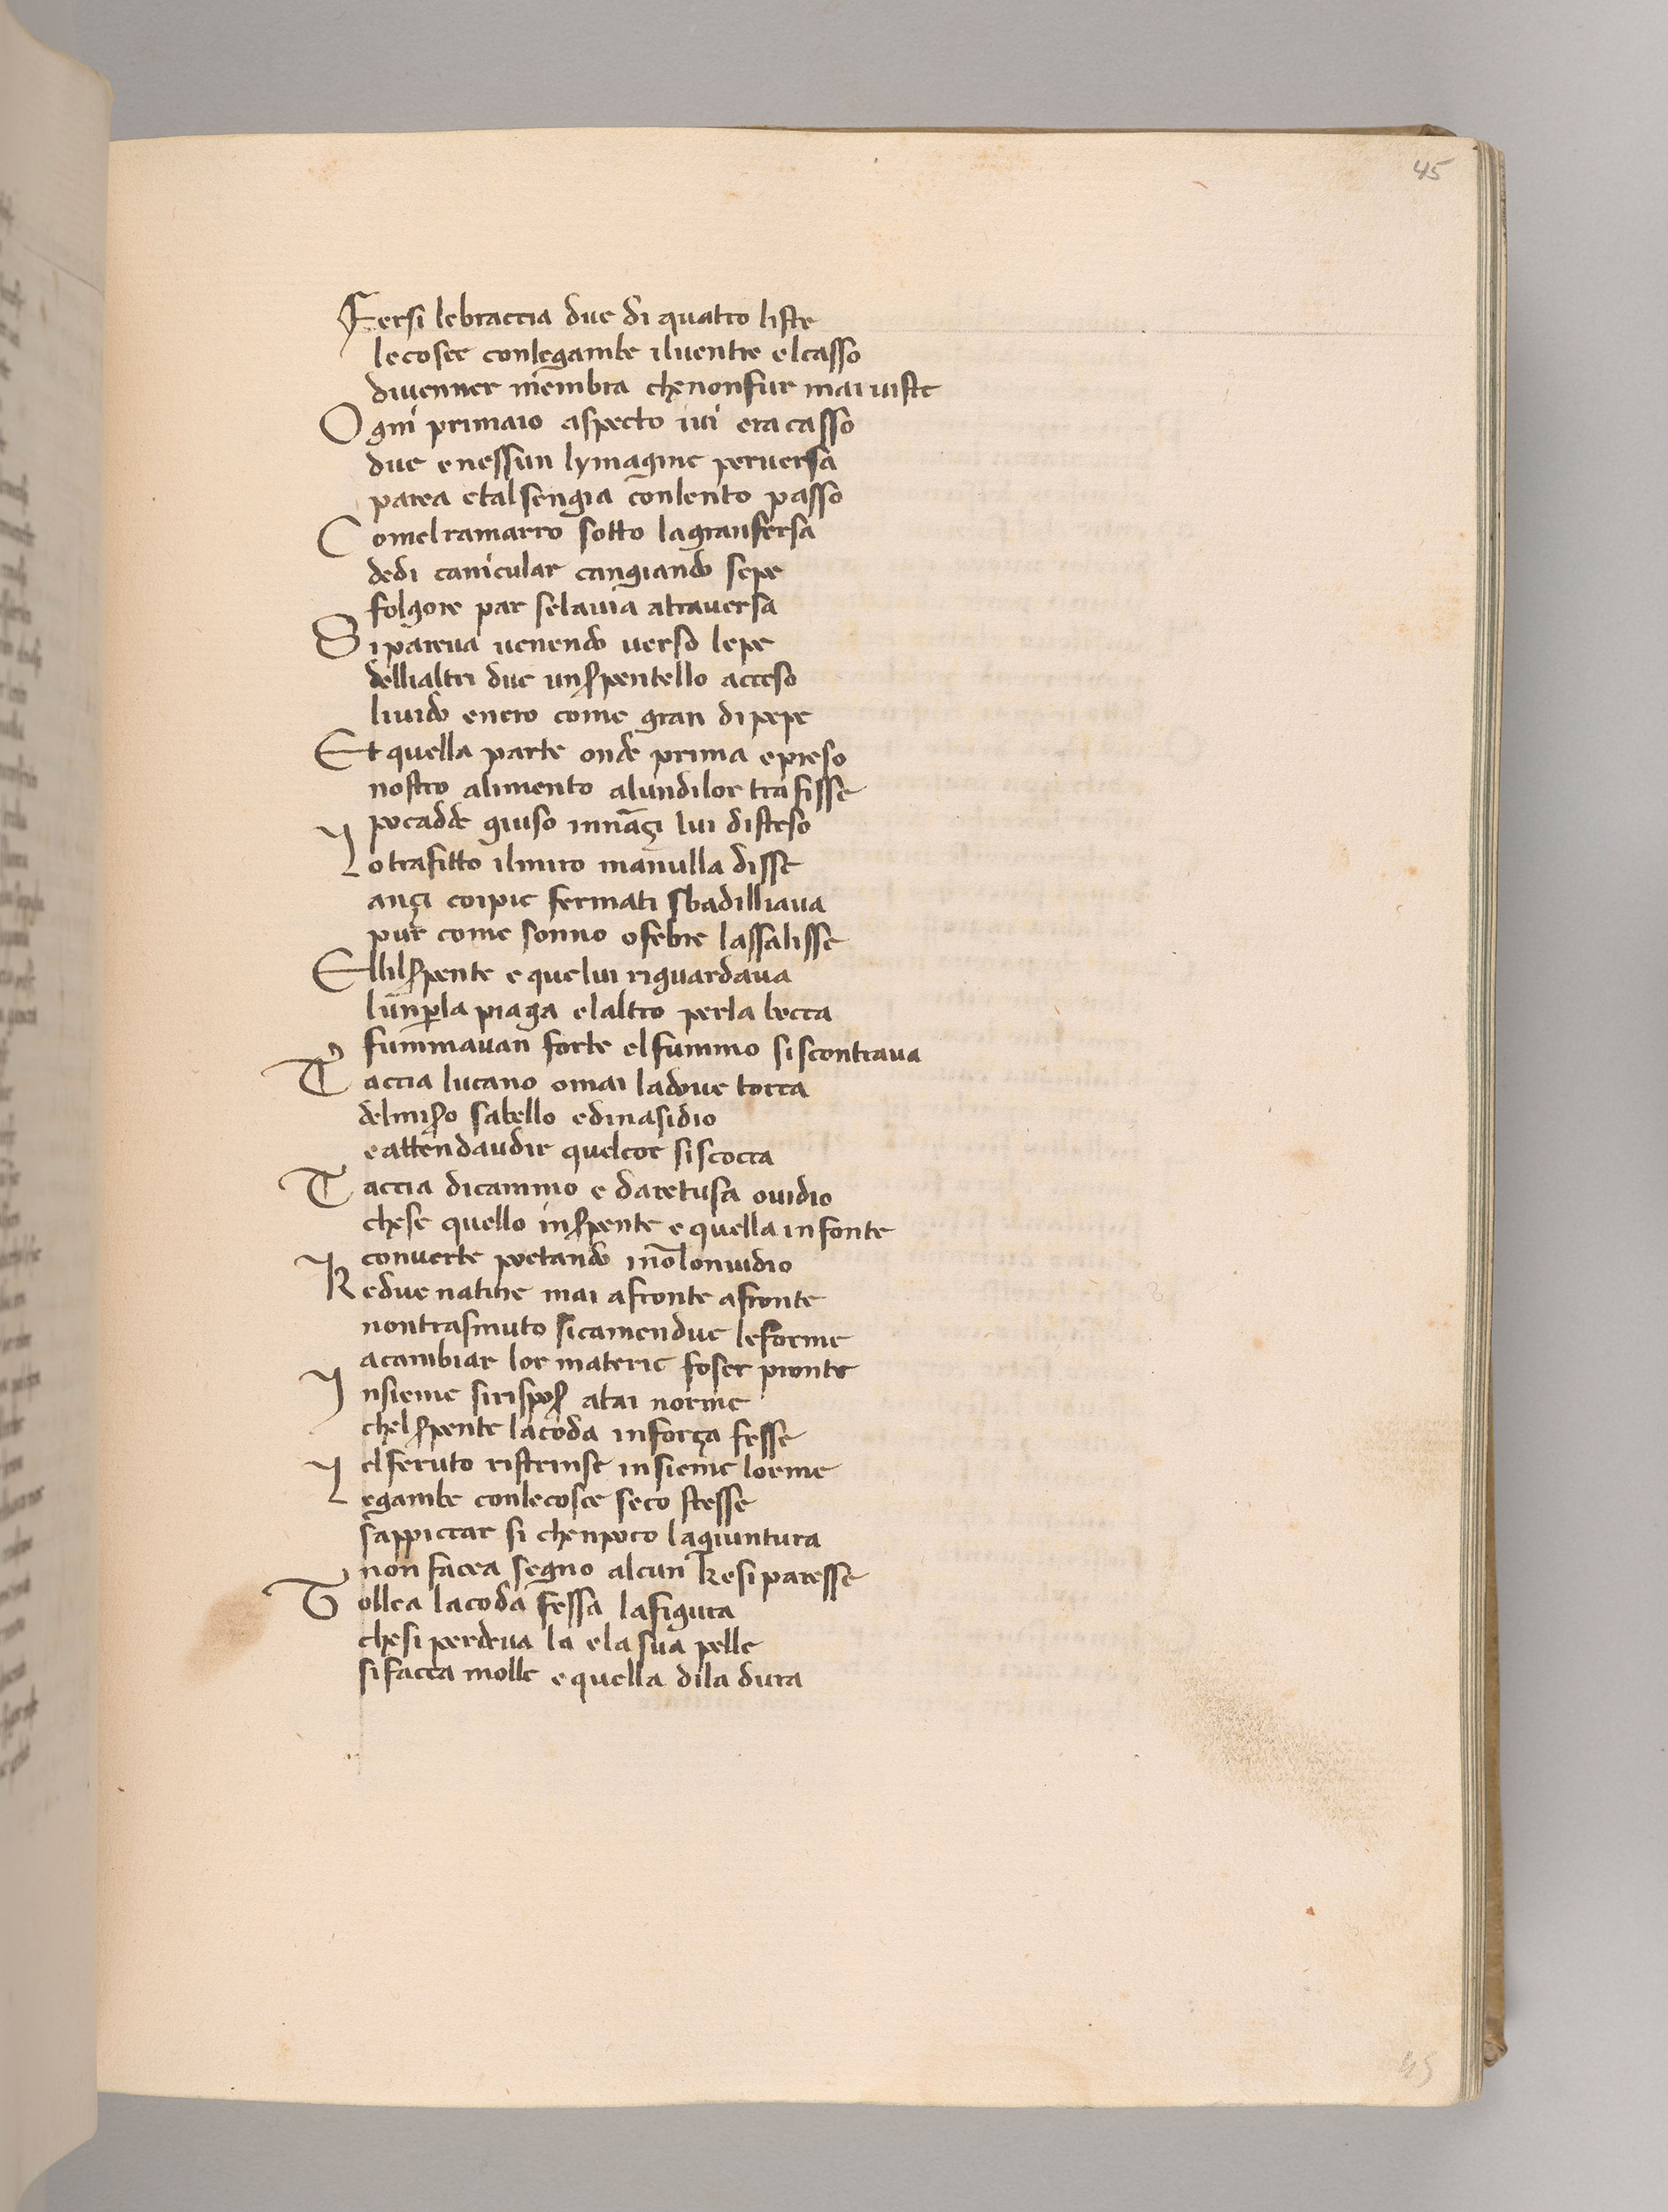 45
Fersi lebraccia due di quatro liste
lecosce conlegambe iluentre elcasso
diuenner membra chenonfur mai uiste
Ogni primaio aspecto iui era casso
due e nessun lymagine peruersa
parea etal sengia conlento passo
Comelramarro sotto lagranfersa
dedi canicular cangiando sepe
folgore par selauia atrauersa
Si pareua uenendo uerso lepe
dellialtri due unspentello acceso
liuido enero come gran di pepe
Et quella parte onde prima epreso
nostro alimento alundilor trafisse
pocadde giuso innāçi lui disteso
Lo trafitto ilmiro manulla disse
ançi coipie fermati sbadilliaua
pur come sonno ofebre lassalisse
Ellilspente e quelui riguardaua
lunperla piaga elaltro perla bocca
fummauan forte elfummo siscontraua
Taccia lucano omai ladoue tocca
delmiso sabello edinasidio
e attendaudir quelcor siscocca
Taccia dicammo e daretusa ouidio
chese quello inspente e quella infonte
conuerte poetando inōlonuidio
Kedue nature mai afronte afronte
nontrasmuto sicamendue leforme
acambiar lor materie foser pronte
Insieme sirisposs atai norme
chelspente lacoda inforça fesse
elferuto ristrinse insieme lorme
Legambe conlecosce seco stesse
sappiccar si chenpoco lagiuntura
non facea segno alcun kesiparesse
Tollea lacoda fessa lafigura
chesi perdeua la elasua pelle
sifacea molle e quella dila dura
45